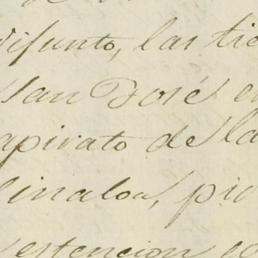 difunto, las tie
San José e
apirato de la
Sinaloa, pi
estencion